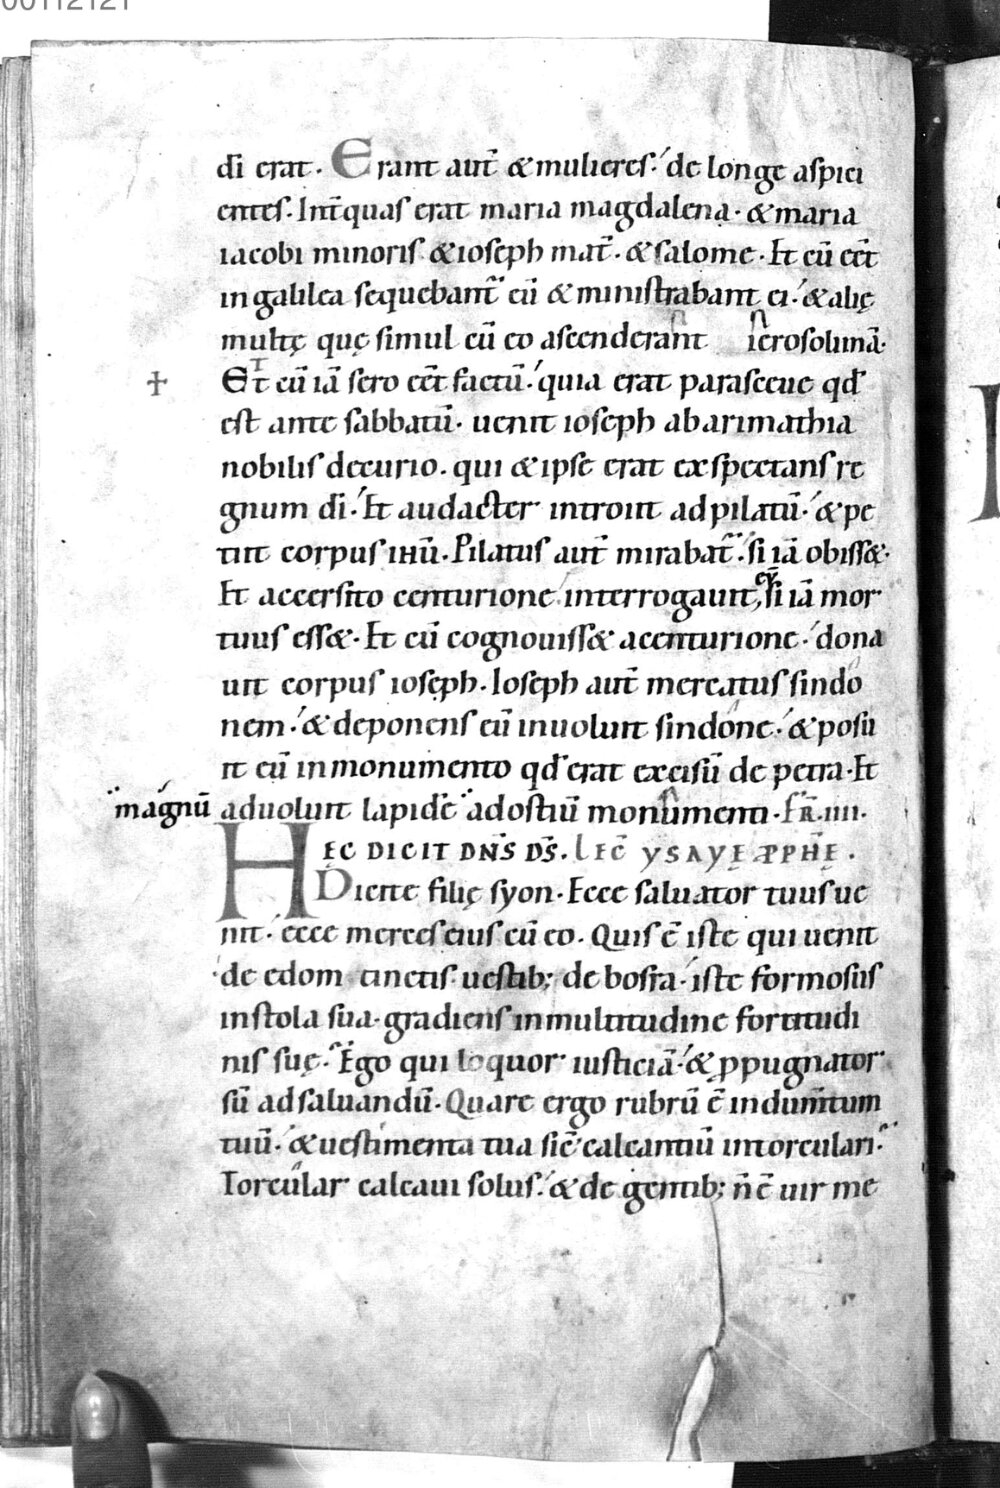 00112121
dī erat. Erant aut̄ & mulieres. de longe aspici
entes. Int̄ quas erat maria magdalena. & maria
iacobi minoris & ioseph mat̄. & salome. Et cū eēt
in galilea sequebant̄ eū & ministrabant ei. & alię
multę quę simul cū eo ascenderant ierosolimā.
† Et cū iā sero eēt factū. quia erat parasceue qd̄
est ante sabbatū. uenit ioseph abarimathia
nobilis decurio. qui & ipse erat exspectans re
gnum dī. Et audacter introiit ad pilatū. & pe
tiit corpus ihū. Pilatus aut̄ mirabat̄. si iā obiss&.
Et accersito centurione interrogauit eū si iā mor
tuus ess&. Et cū cognouiss& acenturione. dona
uit corpus ioseph. Ioseph aut̄ mercatus sindo
nem. & deponens eū inuoluit sindone. & posu
it eū in monumento qd̄ erat excisū de petra. Et
magnū aduoluit lapidē ad ostiū monumenti. FR̄. IIII.
HĘC DICIT DN̄S DS̄. LEC̄ YSAYĘ PPHĘ.
Dicite filię syon. Ecce saluator tuus ue
nit. ecce merces eius cū eo. Quis ē iste qui uenit
de edom tinctis uestib; de bosra. iste formosus
in stola sua. gradiens in multitudine fortitudi
nis suę. Ego qui loquor iusticiā. & ppugnator
sū ad saluandū. Quare ergo rubrū ē indumtum
tuū. & uestimenta tua sic̄ calcantiū in torculari.
Torcular calcaui solus. & de gentib; n̄ ē uir me